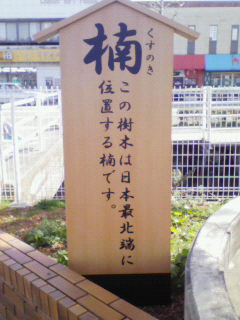 くすのき
楠
この樹木は日本最北端に
位置する楠です。